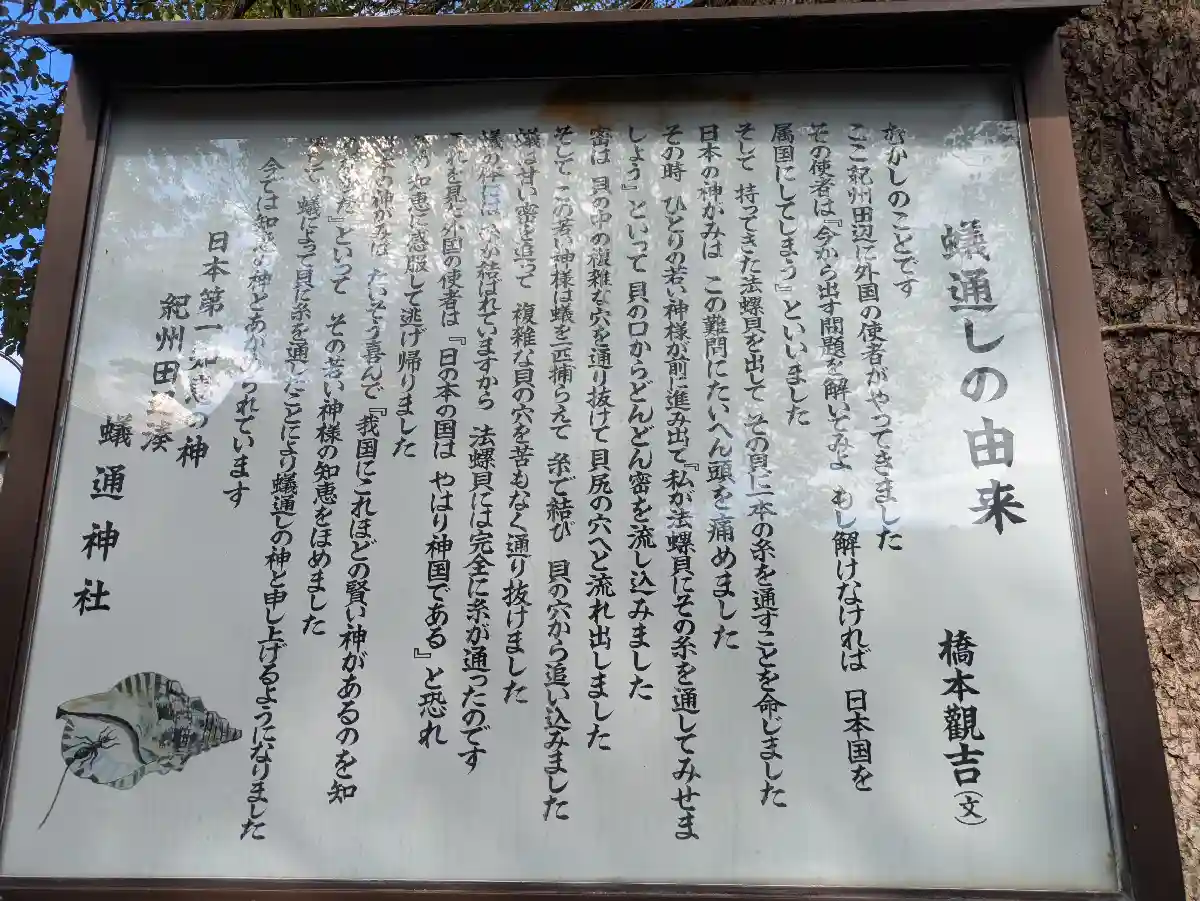 蟻通しの由来 橋本觀吉(文)
むかしのことです
ここ紀州田辺に外国の使者がやってきました
その使者は『今から出す問題を解いてみよ もし解けなければ 日本国を
属国にしてしまう』といいました
そして 持ってきた法螺貝を出して その貝に一本の糸を通すことを命じました
日本の神がみは この難問にたいへん頭を痛めました
その時 ひとりの若い神様が前に進み出て『私が法螺貝にその糸を通してみせま
しょう』といって 貝の口からどんどん密を流し込みました
密は 貝の中の複雑な穴を通り抜けて貝尻の穴へと流れ出しました
そして この若い神様は蟻を一匹捕らえて 糸で結び 貝の穴から追い込みました
蟻は甘い密を追って 複雑な貝の穴を苦もなく通り抜けました
蟻の体には 糸が結ばれていますから 法螺貝には完全に糸が通ったのです
これを見た外国の使者は『日の本の国は やはり神国である』と恐れ
知恵に感服して逃げ帰りました
の神がみは たいそう喜んで『我国にこれほどの賢い神があるのを知
といって その若い神様の知恵をほめました
蟻によって貝に糸を通したことにより蟻通しの神と申し上げるようになりました
今では知恵の神とあがめられています
日本第一知恵の神
紀州田辺湊
蟻通神社